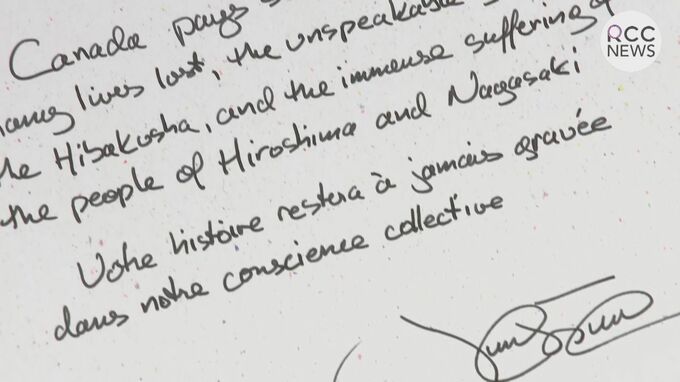 Canada pays
many lives lost, the unspeakable
the Hibakusha, and the immense suffering of
the people of Hiroshima and Nagasaki
Votre histoire restera à jamais gravée
dans notre conscience collective
RCC
NEWS